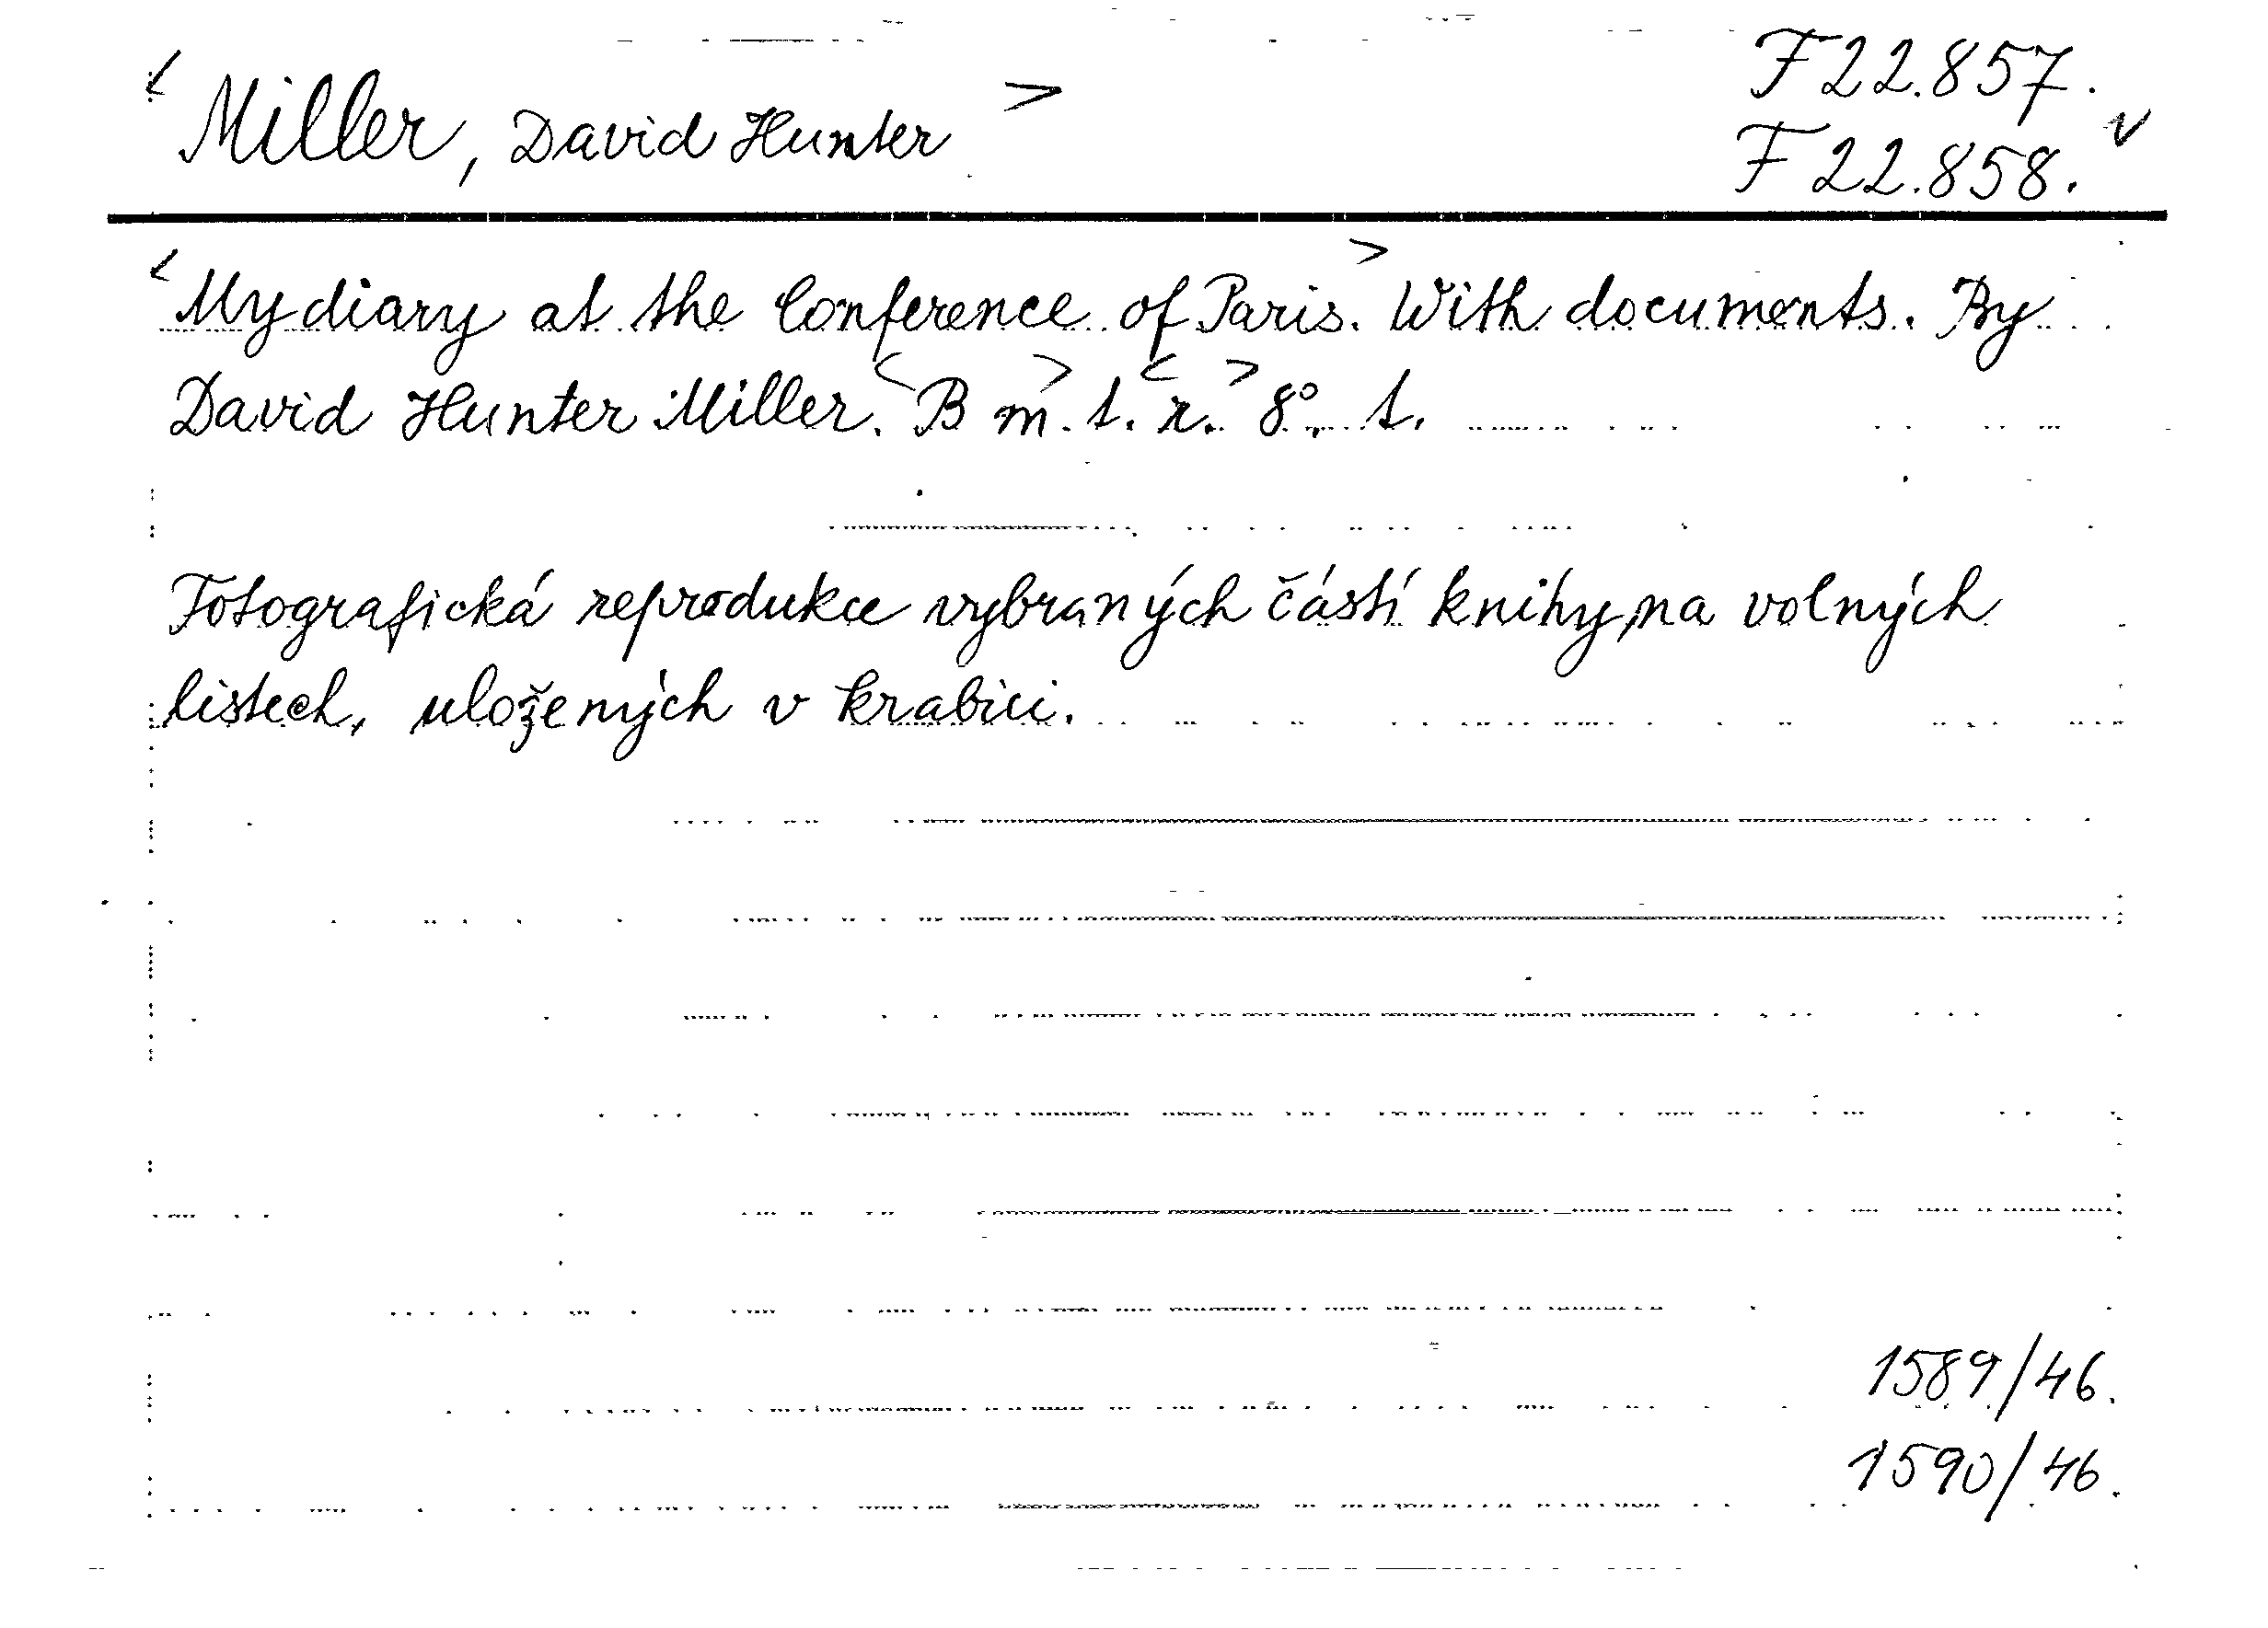 <Miller, David Hunter> F 22.857.
F 22.858. v
<My diary at the Conference of Paris.> With documents. By
David Hunter Miller. <B m.> t. <r.> 8°. t.
Fotografická reprodukce vybraných částí knihy, na volných
listech, uložených v krabici.
1589/46.
1590/46.